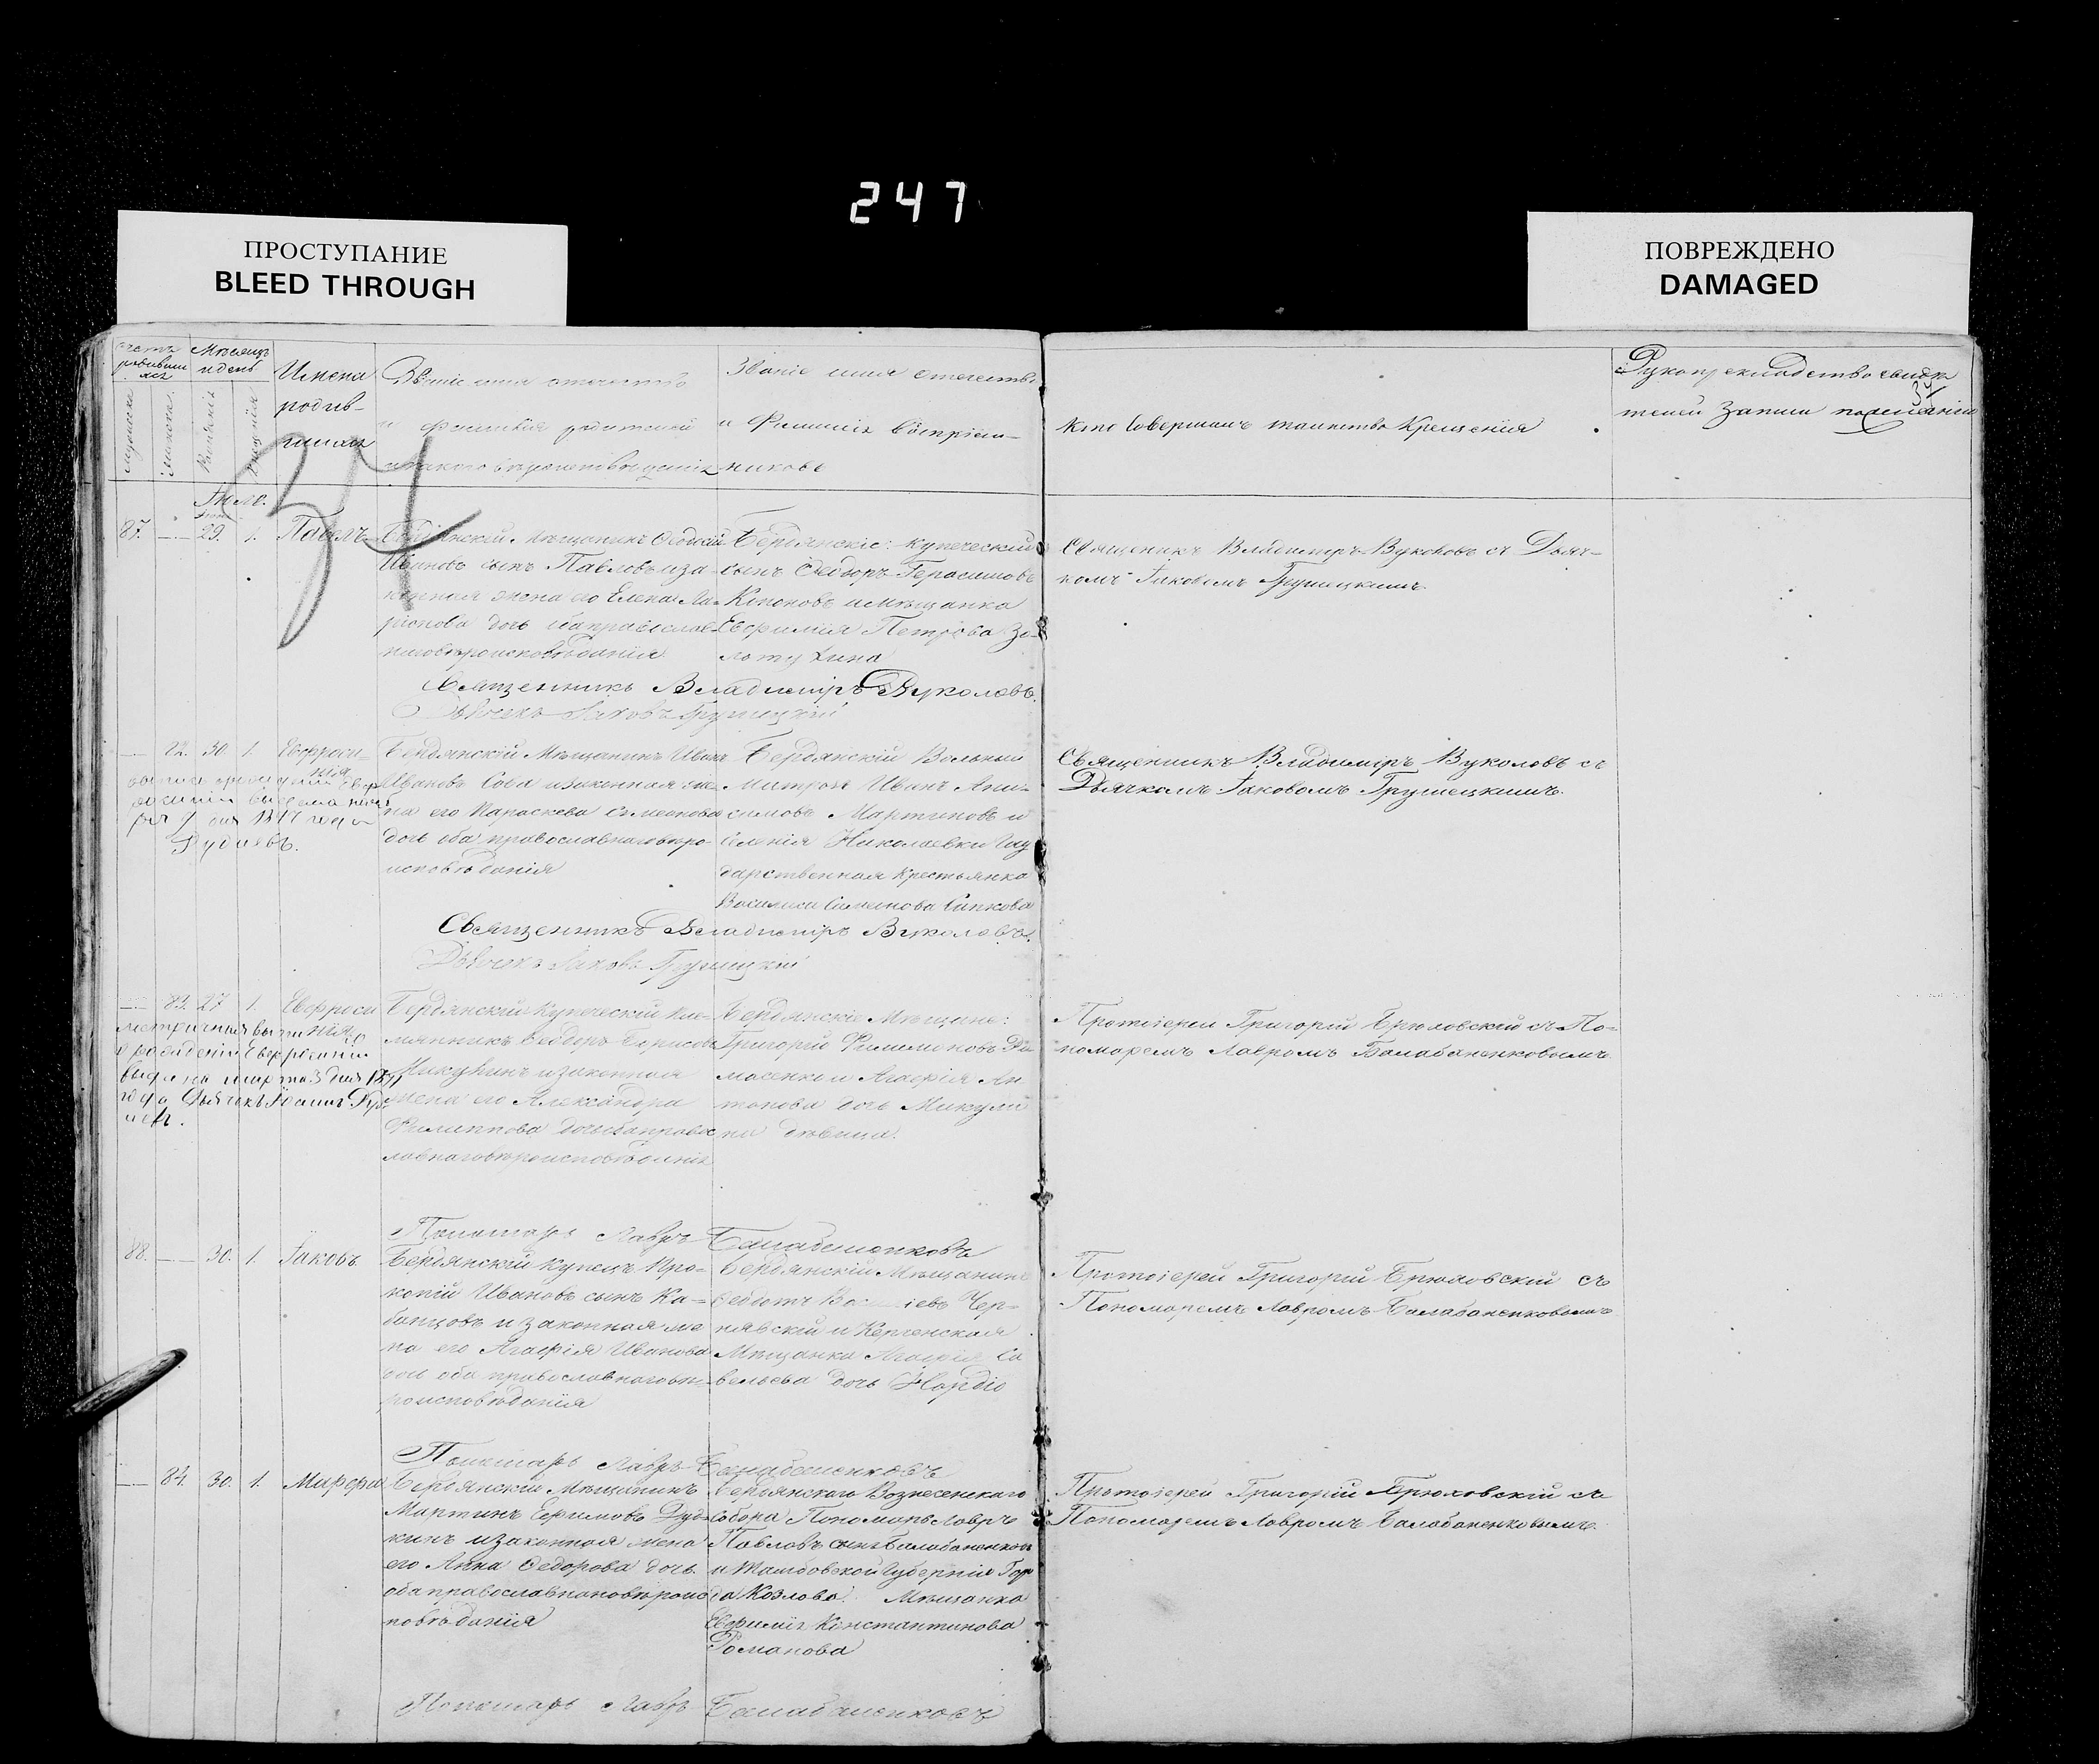 247
ПРОСТУПАНИЕ
BLEED THROUGH
ПОВРЕЖДЕНО
DAMAGED
Мѣсяцъ
и день
Имена
родив-
шихся
Званіе имя отечество
и Фамилія родителей
Званіе имя отечество
и Фамилія воспріем-
никовъ
Кто Совершалъ таинство Крещенія
Рукоприкладство свидѣ
телей записи по желанію
Іюль.
87. — 29. 1. Павелъ
Бердянскій Мѣщанинъ Ѳеодосій
Ивановъ сынъ Павловъ и за-
конная жена его Елена Ла-
ріонова дочь оба православ-
наго вѣроисповѣданія
Бердянскіе: купеческій
сынъ Ѳедоръ Герасимовъ
Кононовъ и мѣщанка
Евфимія Петрова Зо-
лотухина
Священникъ Владиміръ Вуколовъ съ Дьяч-
комъ Іаковомъ Грушецкимъ.
Священникъ Владиміръ Вуколовъ.
Дьячекъ Іаковъ Грушецкій
— 82. 30. 1. Евфроси-
нія
Бердянскій Мѣщанинъ Иванъ
Ивановъ Сова и законная же-
на его Параскева Симеонова
дочь оба православнаго вѣро-
исповѣданія
Бердянскій Вольный
Матрозъ Иванъ Ани-
симовъ Мартыновъ и
селенія Николаевки Госу
дарственная Крестьянка
Василиса Симеонова Сапкова
Священникъ Владиміръ Вуколовъ съ
Дьячкомъ Іаковомъ Грушецкимъ.
дня 1847 года
Рудаевъ.
Священникъ Владиміръ Вуколовъ.
Дьячекъ Іаковъ Грушецкій
— 83. 27 1. Евфроси
нія
Бердянскій Купеческій пле-
мянникъ Ѳедоръ Борисовъ
Микулинъ и законная
жена его Александра
Филиппова дочь оба правос
лавнаго вѣроисповѣданія
Бердянскіе Мѣщане:
Григорій Филимоновъ
и Агафія Ан
тонова дочь Микули
на дѣвица.
Протоіерей Григорій Брюховскій съ По-
номаремъ Лавромъ Балабаненковымъ
о рожденіи Евфросиніи
выдана марта 3 дня
года Дьячекъ
Пономарь Лавръ Балабаненковъ
88. — 30. 1. Іаковъ
Бердянскій купецъ Про-
копій Ивановъ сынъ Ка-
банцовъ и законная же
на его Агафія Иванова
дочь оба православнаго вѣ-
роисповѣданія
Бердянскій Мѣщанинъ
Ѳедотъ Чер-
нявскій и Керченская
Мѣщанка Агафія Са
вельева дочь
Протоіерей Григорій Брюховскій съ
Пономаремъ Лавромъ Балабаненковымъ
Пономарь Лавръ Балабаненковъ
— 84. 30. 1. Марфа
Бердянскій Мѣщанинъ
Мартинъ Ефимовъ Дуд-
кинъ и законная жена
его Анна Ѳедорова дочь
оба православнаго вѣроис
повѣданія
Бердянскаго Вознесенскаго
Собора Пономарь Лавръ
Павловъ сынъ Балабаненковъ
и Тамбовской Губерніи Горо
да Козлова Мѣщанка
Евфимія Константинова
Романова
Протоіерей Григорій Брюховскій съ
Пономаремъ Лавромъ Балабаненковымъ.
Пономарь Лавръ Балабаненковъ